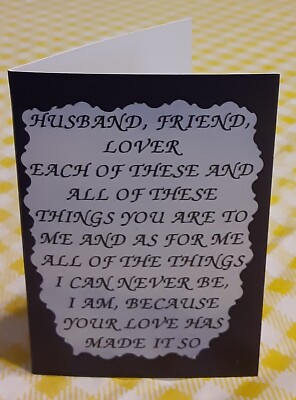 HUSBAND, FRIEND,
LOVER
EACH OF THESE AND
ALL OF THESE
THINGS YOU ARE TO
ME AND AS FOR ME
ALL OF THE THINGS
I CAN NEVER BE,
I AM, BECAUSE
YOUR LOVE HAS
MADE IT SO